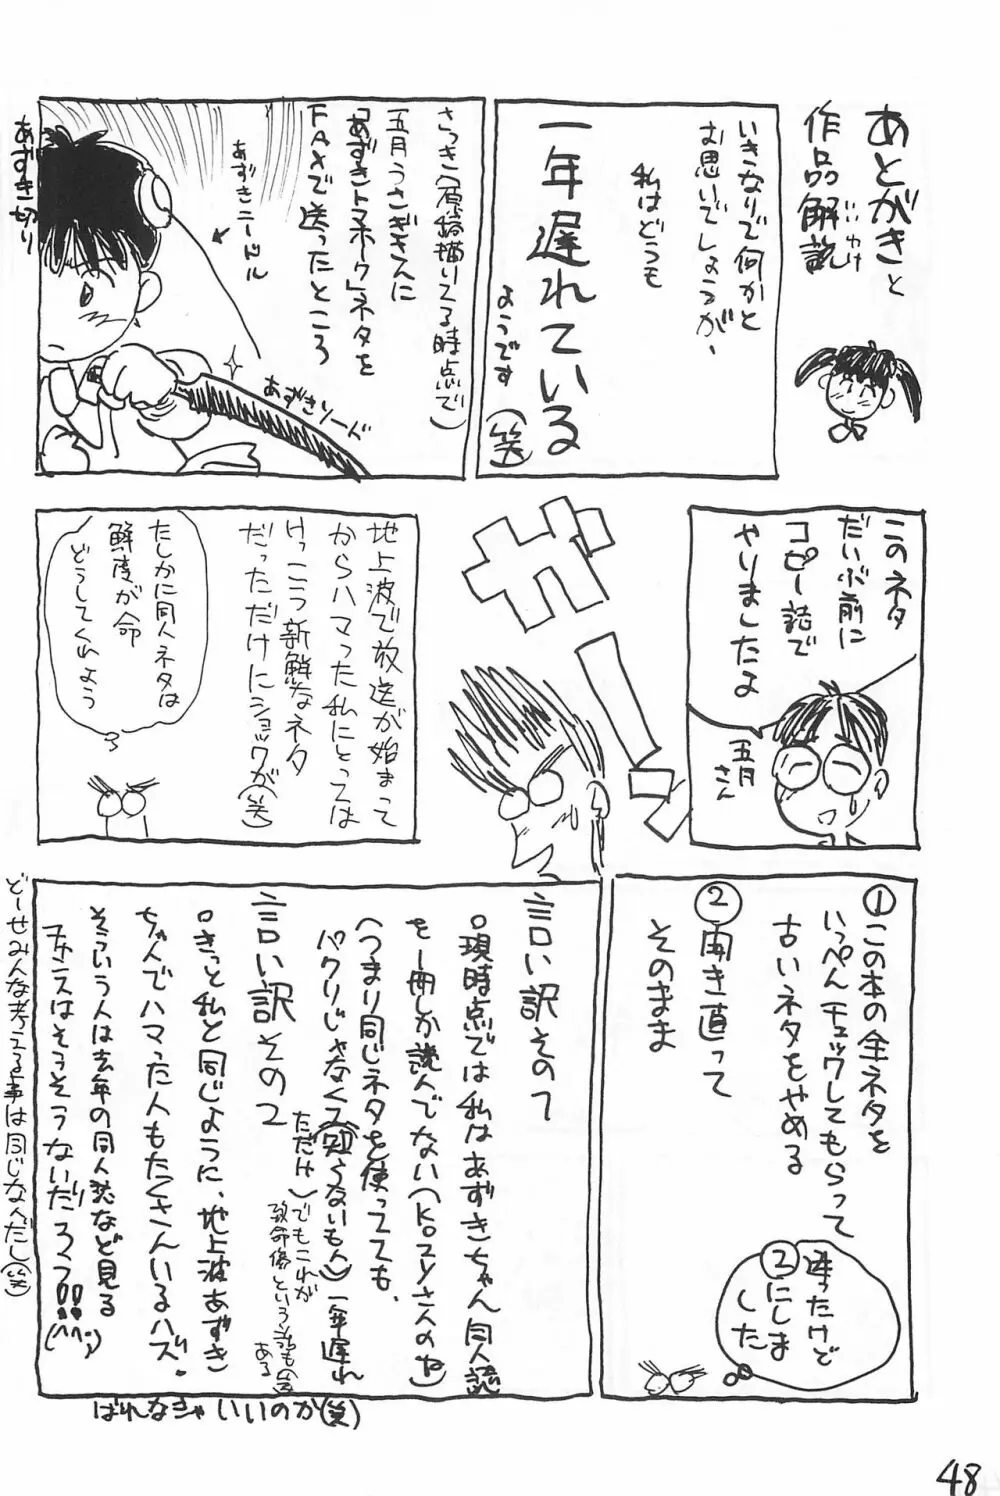 あとがきと
作品解説
いいわけ
いきなりで何かと
お思いでしょうが、
私はどうも
一年遅れている
ようです
(笑)
さっき(原稿描いてる時点で)
五月うさぎさんに
「あずきトマホーク」ネタを
FAXで送ったところ
あずきニードル
あずきソード
あずき切り
このネタ
だいぶ前に
コピー誌で
やりましたよ
五月さん
ガーン
地上波で放送が始まって
からハマった私にとっては
けっこう新鮮なネタ
だっただけにショックが(笑)
たしかに同人ネタは
鮮度が命
どうしてくれよう
①この本の全ネタを
いっぺんチェックしてもらって
古いネタをやめる
②開き直って
そのまま
迷ったけど
②にしま
した
言い訳その1
。現時点では私はあずきちゃん同人誌
を一冊しか読んでない(KOZYさんのね)
(つまり同じネタを使ってても、
パクリじゃなくて知らないもん)一年遅れ
ただけ)でもこれが
致命傷という説もの
ある
言い訳その2
。きっと私と同じように、地上波あずき
ちゃんでハマった人もたくさんいるハズ。
そういう人は去年の同人誌など見る
チャンスはそうそうないだろう!!(^^;)
どーせみんな考える事は同じなんだし(笑)
ばれなきゃいいのか(笑)
48